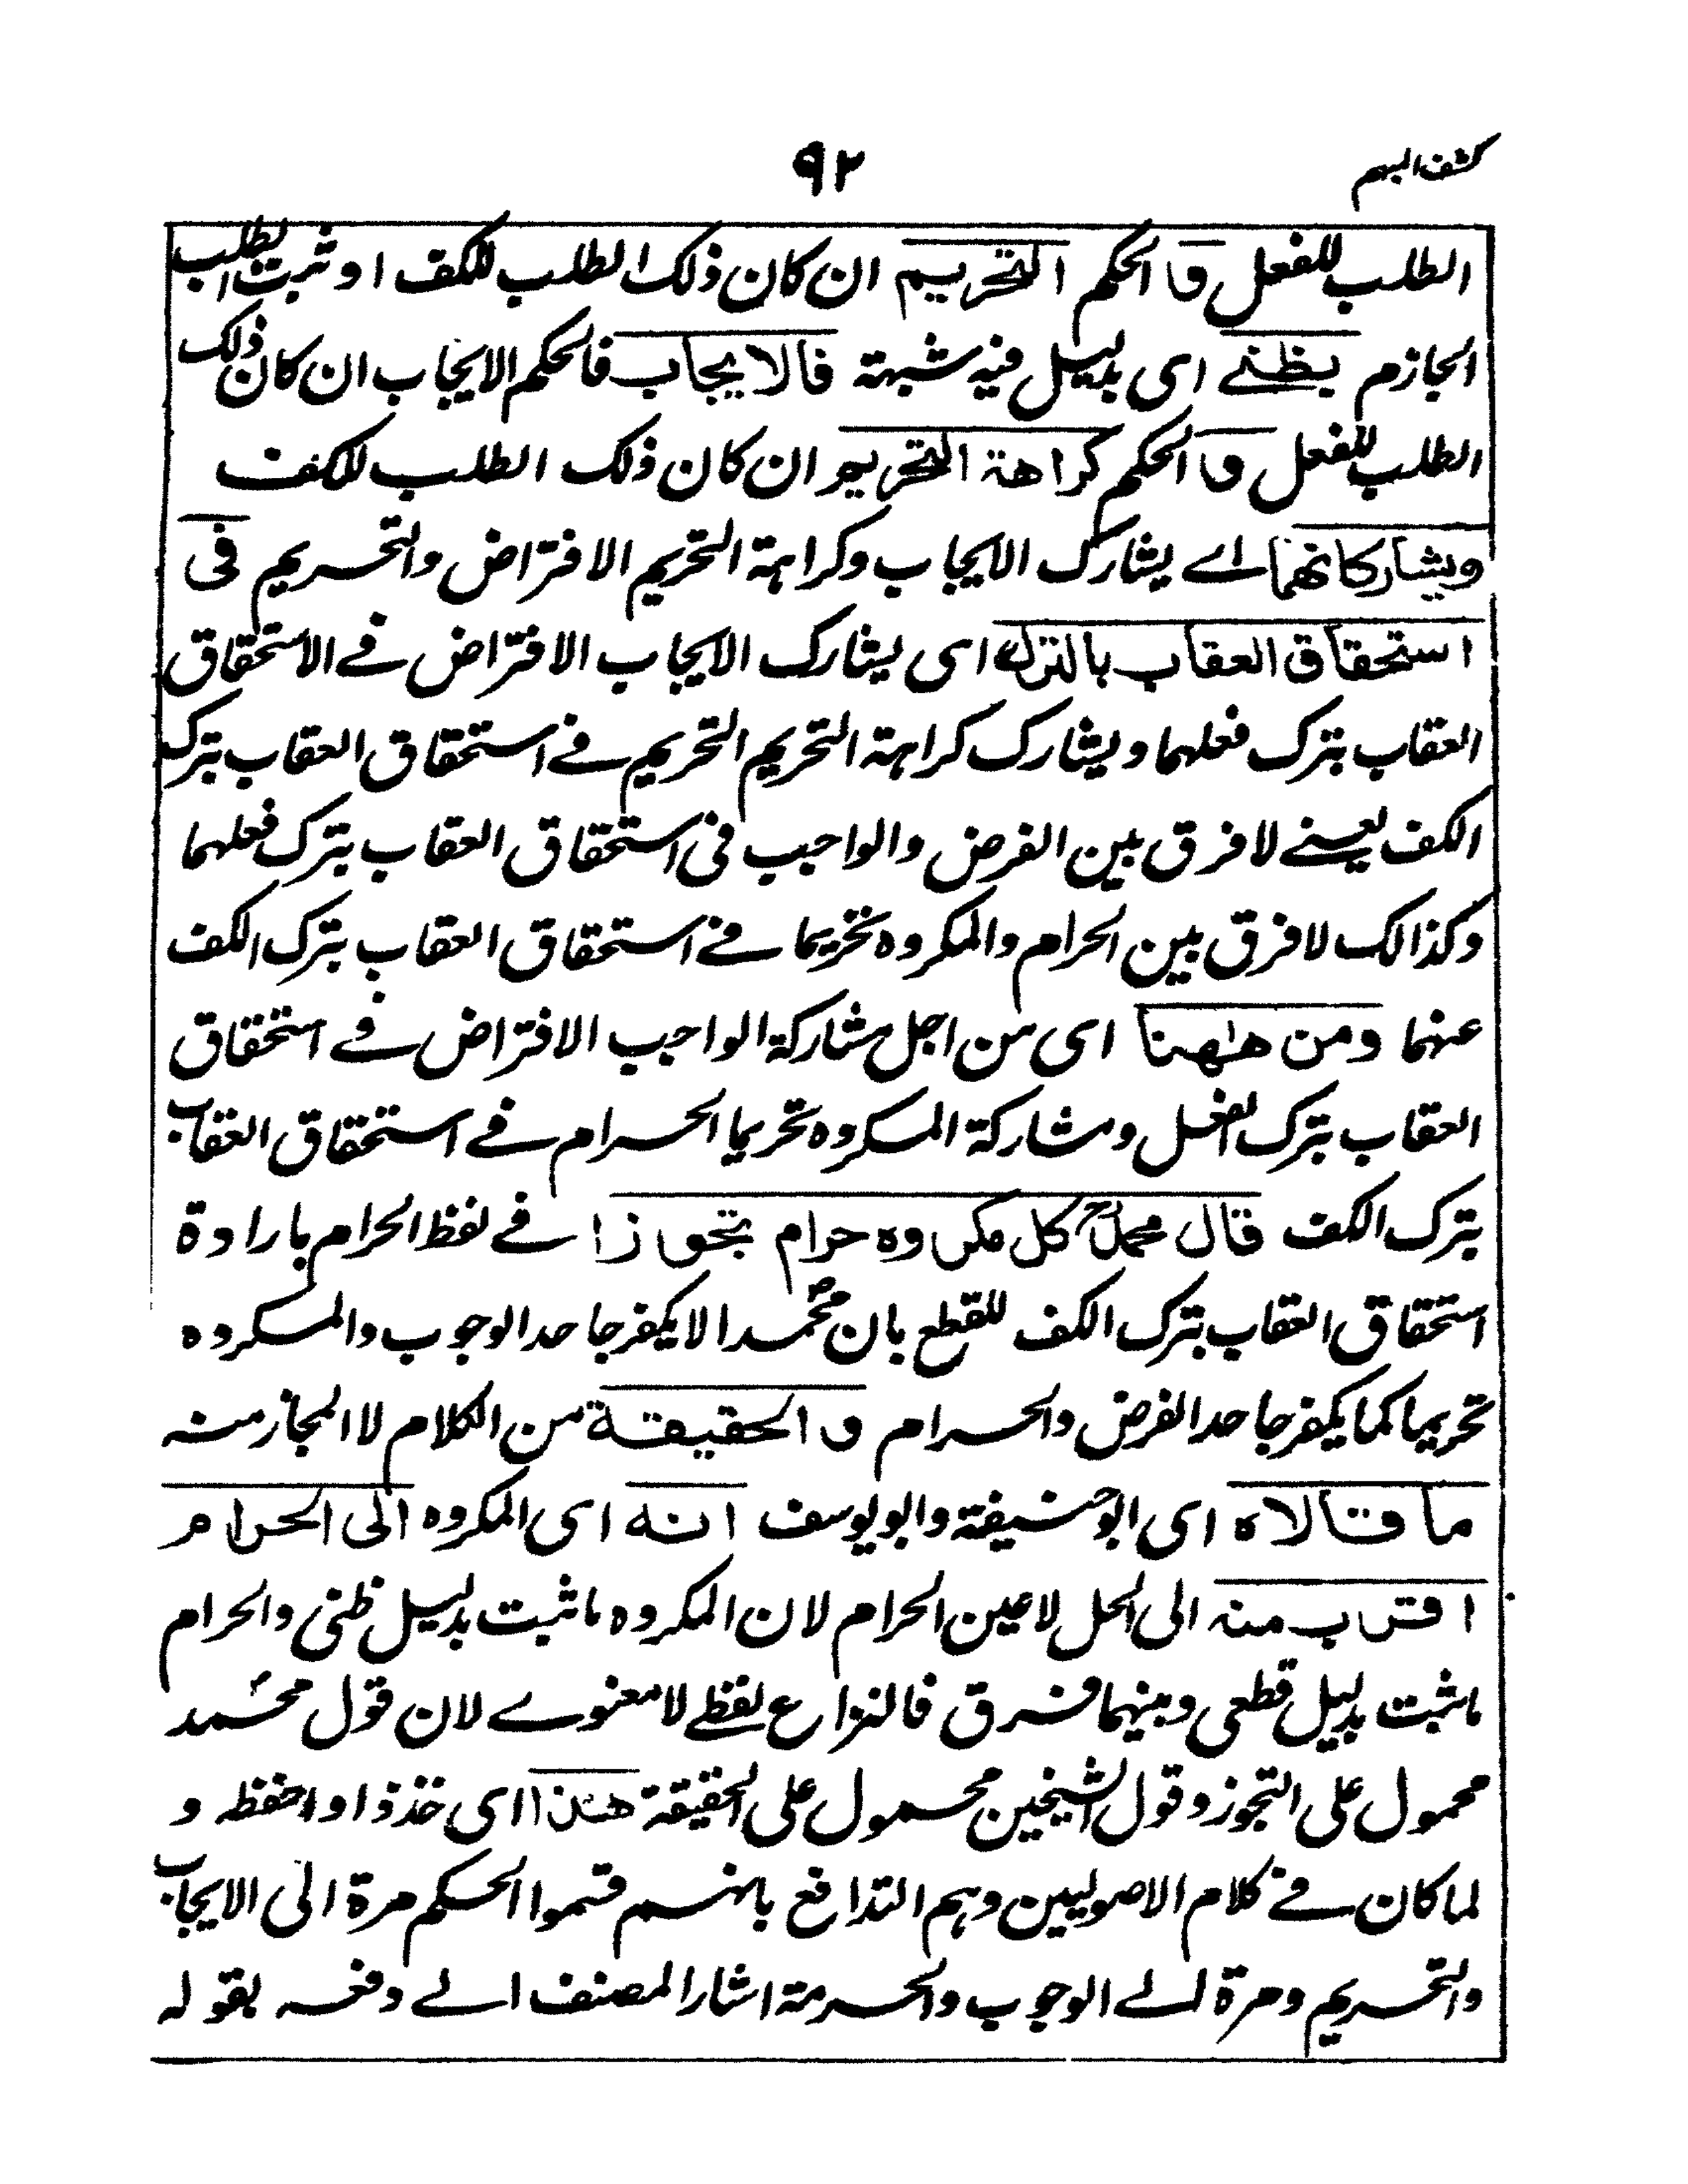 كشف المبهم
٩٢
الطلب للفعل و الحكم التحريم ان كان ذلك الطلب للكف او ثبت الطلب
الجازم بظني اى بدليل فيه شبهة فالايجاب فالحكم الايجاب ان كان ذلك
الطلب للفعل و الحكم كراهة التحريم ان كان ذلك الطلب للكف
ويشاركانهما اے يشارك الايجاب وكراهة التحريم الافتراض والتحريم فى
استحقاق العقاب بالترك اى يشارك الايجاب الافتراض فے الاستحقاق
العقاب بترك فعلهما ويشارك كراهة التحريم التحريم فے استحقاق العقاب بترك
الكف يعنے لا فرق بين الفرض والواجب فى استحقاق العقاب بترك فعلهما
وكذالك لا فرق بين الحرام والمكروه تحريما فے استحقاق العقاب بترك الكف
عنهما ومن هٰهنا اى من اجل مشاركة الواجب الافتراض فے استحقاق
العقاب بترك الفعل ومشاركة المكروه تحريما الحرام فے استحقاق العقاب
بترك الكف قال محمدؒ كل مكروه حرام تجوزا فے لفظ الحرام بارادة
استحقاق العقاب بترك الكف للقطع بان محمدا لا يكفر جاحد الوجوب والمكروه
تحريما كما يكفر جاحد الفرض والحرام و الحقيقة من الكلام لا المجاز منه
ما قالاه اى ابوحنيفة وابويوسف انه اى المكروه الى الحرام
اقرب منه الى الحل لا عين الحرام لان المكروه ما ثبت بدليل ظنى والحرام
ما ثبت بدليل قطعى وبينهما فرق فالنزاع لفظے لا معنوے لان قول محمد
محمول على التجوز وقول الشيخين محمول على الحقيقة هذا اى خذ ذا واحفظه و
لما كان فے كلام الاصوليين وهم التدافع بانهم قسموا الحكم مرة الى الايجاب
والتحريم ومرة الے الوجوب والحرمة اشار المصنف الے دفعه بقوله